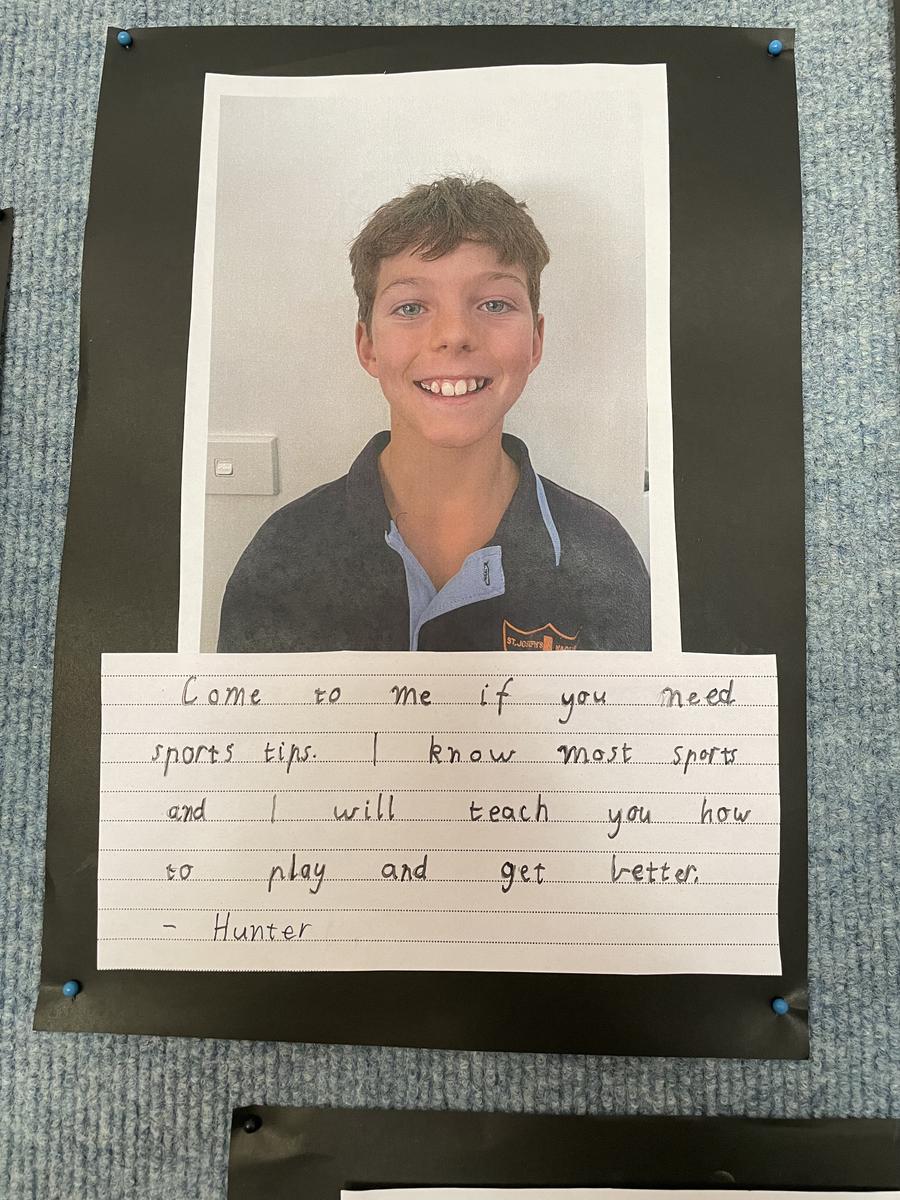 ST. JOSEPH'S
Come to me if you need
sports tips. I know most sports
and I will teach you how
to play and get better.
- Hunter